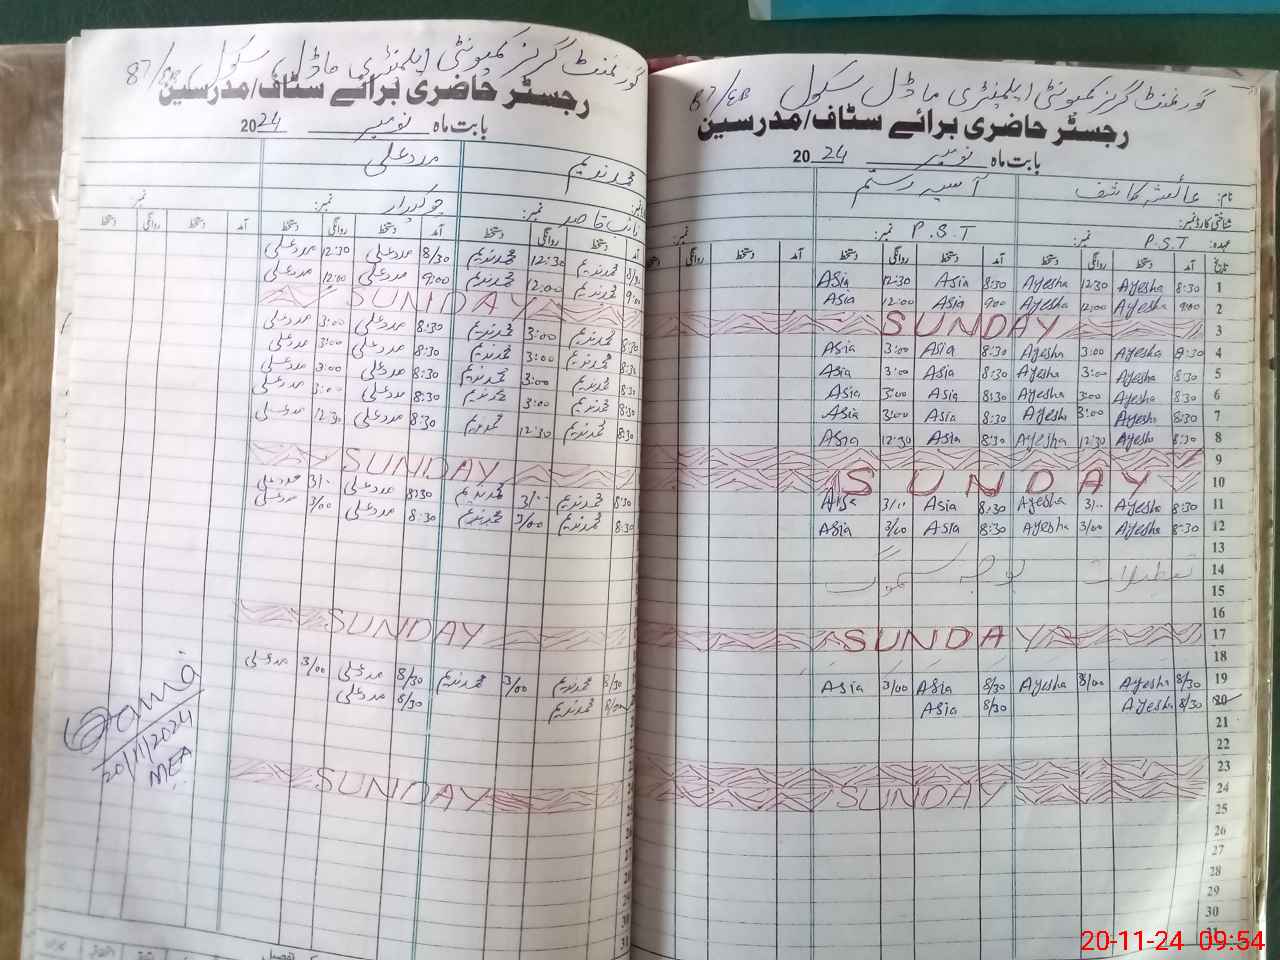 گورنمنٹ گرلز کمیونٹی ایلیمنٹری ماڈل سکول 87/EB
رجسٹر حاضری برائے سٹاف/مدرسین
بابت ماہ نومبر 2024
نام: عائشہ کاشف آسیہ رستم
شناختی کارڈ نمبر:
عہدہ: P.S.T نمبر: P.S.T نمبر:
تاریخ آمد دستخط روانگی دستخط آمد دستخط روانگی دستخط آمد دستخط روانگی دستخط
1 8:30 Ayesha 12:30 Ayesha 8:30 Asia 12:30 Asia
2 9:00 Ayesha 12:00 Ayesha 9:00 Asia 12:00 Asia
3 SUNDAY
4 8:30 Ayesha 3:00 Ayesha 8:30 Asia 3:00 Asia
5 8:30 Ayesha 3:00 Ayesha 8:30 Asia 3:00 Asia
6 8:30 Ayesha 3:00 Ayesha 8:30 Asia 3:00 Asia
7 8:30 Ayesha 3:00 Ayesha 8:30 Asia 3:00 Asia
8 8:30 Ayesha 12:30 Ayesha 8:30 Asia 12:30 Asia
9
10 SUNDAY
11 8:30 Ayesha 3/.. Ayesha 8:30 Asia 3/.. Asia
12 8:30 Ayesha 3/00 Ayesha 8:30 Asia 3/00 Asia
13
14 تعطیلات بوجہ سموگ
15
16
17 SUNDAY
18
19 8/30 Ayesha 3/00 Ayesha 8/30 Asia 3/00 Asia
20 8/30 Ayesha 8/30 Asia
21
22
23
24 SUNDAY
25
26
27
28
29
30
31
گورنمنٹ گرلز کمیونٹی ایلیمنٹری ماڈل سکول 87/EB
رجسٹر حاضری برائے سٹاف/مدرسین
بابت ماہ نومبر 2024
محمد ندیم مدد علی
نائب قاصد نمبر: چوکیدار نمبر: نمبر:
دستخط روانگی دستخط آمد دستخط روانگی دستخط آمد دستخط روانگی دستخط
8/30 محمد ندیم 12:30 محمد ندیم 8/30 مدد علی 12:30 مدد علی
9:00 محمد ندیم 12:00 محمد ندیم 9:00 مدد علی 12:00 مدد علی
SUNDAY
8:30 محمد ندیم 3:00 محمد ندیم 8:30 مدد علی 3:00 مدد علی
8:30 محمد ندیم 3:00 محمد ندیم 8:30 مدد علی 3:00 مدد علی
8:30 محمد ندیم 3:00 محمد ندیم 8:30 مدد علی 3:00 مدد علی
8:30 محمد ندیم 3:00 محمد ندیم 8:30 مدد علی 3:00 مدد علی
8:30 محمد ندیم 12:30 محمد ندیم 8:30 مدد علی 12:30 مدد علی
SUNDAY
8:30 محمد ندیم 3/.. محمد ندیم 8:30 مدد علی 3/.. مدد علی
8:30 محمد ندیم 3/00 محمد ندیم 8:30 مدد علی 3/00 مدد علی
SUNDAY
8/30 محمد ندیم 3/00 محمد ندیم 8/30 مدد علی 3/00 مدد علی
محمد ندیم 8/30 مدد علی
SUNDAY
20/11/2024
MEA
20-11-24 09:54